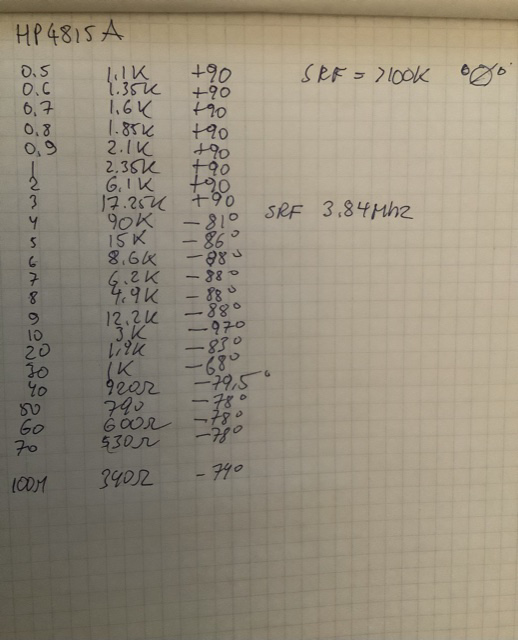 HP4815A
0.5 1.1K +90 SRF = >100K
0.6 1.35K +90
0,7 1.6K +90
0,8 1.85K +90
0,9 2.1K +90
1 2.35K +90
2 6.1K +90
3 17.25K +90
4 90K -81° SRF 3.84Mhz
5 15K -86°
6 8.6K -88°
7 6.2K -88°
8 4.9K -88°
9 12.2K -88°
10 3K -97°
20 1.9K -83°
30 1K -68°
40 920Ω -79,5°
50 790 -78°
60 600Ω -78°
70 530Ω -78°
100M 340Ω -74°